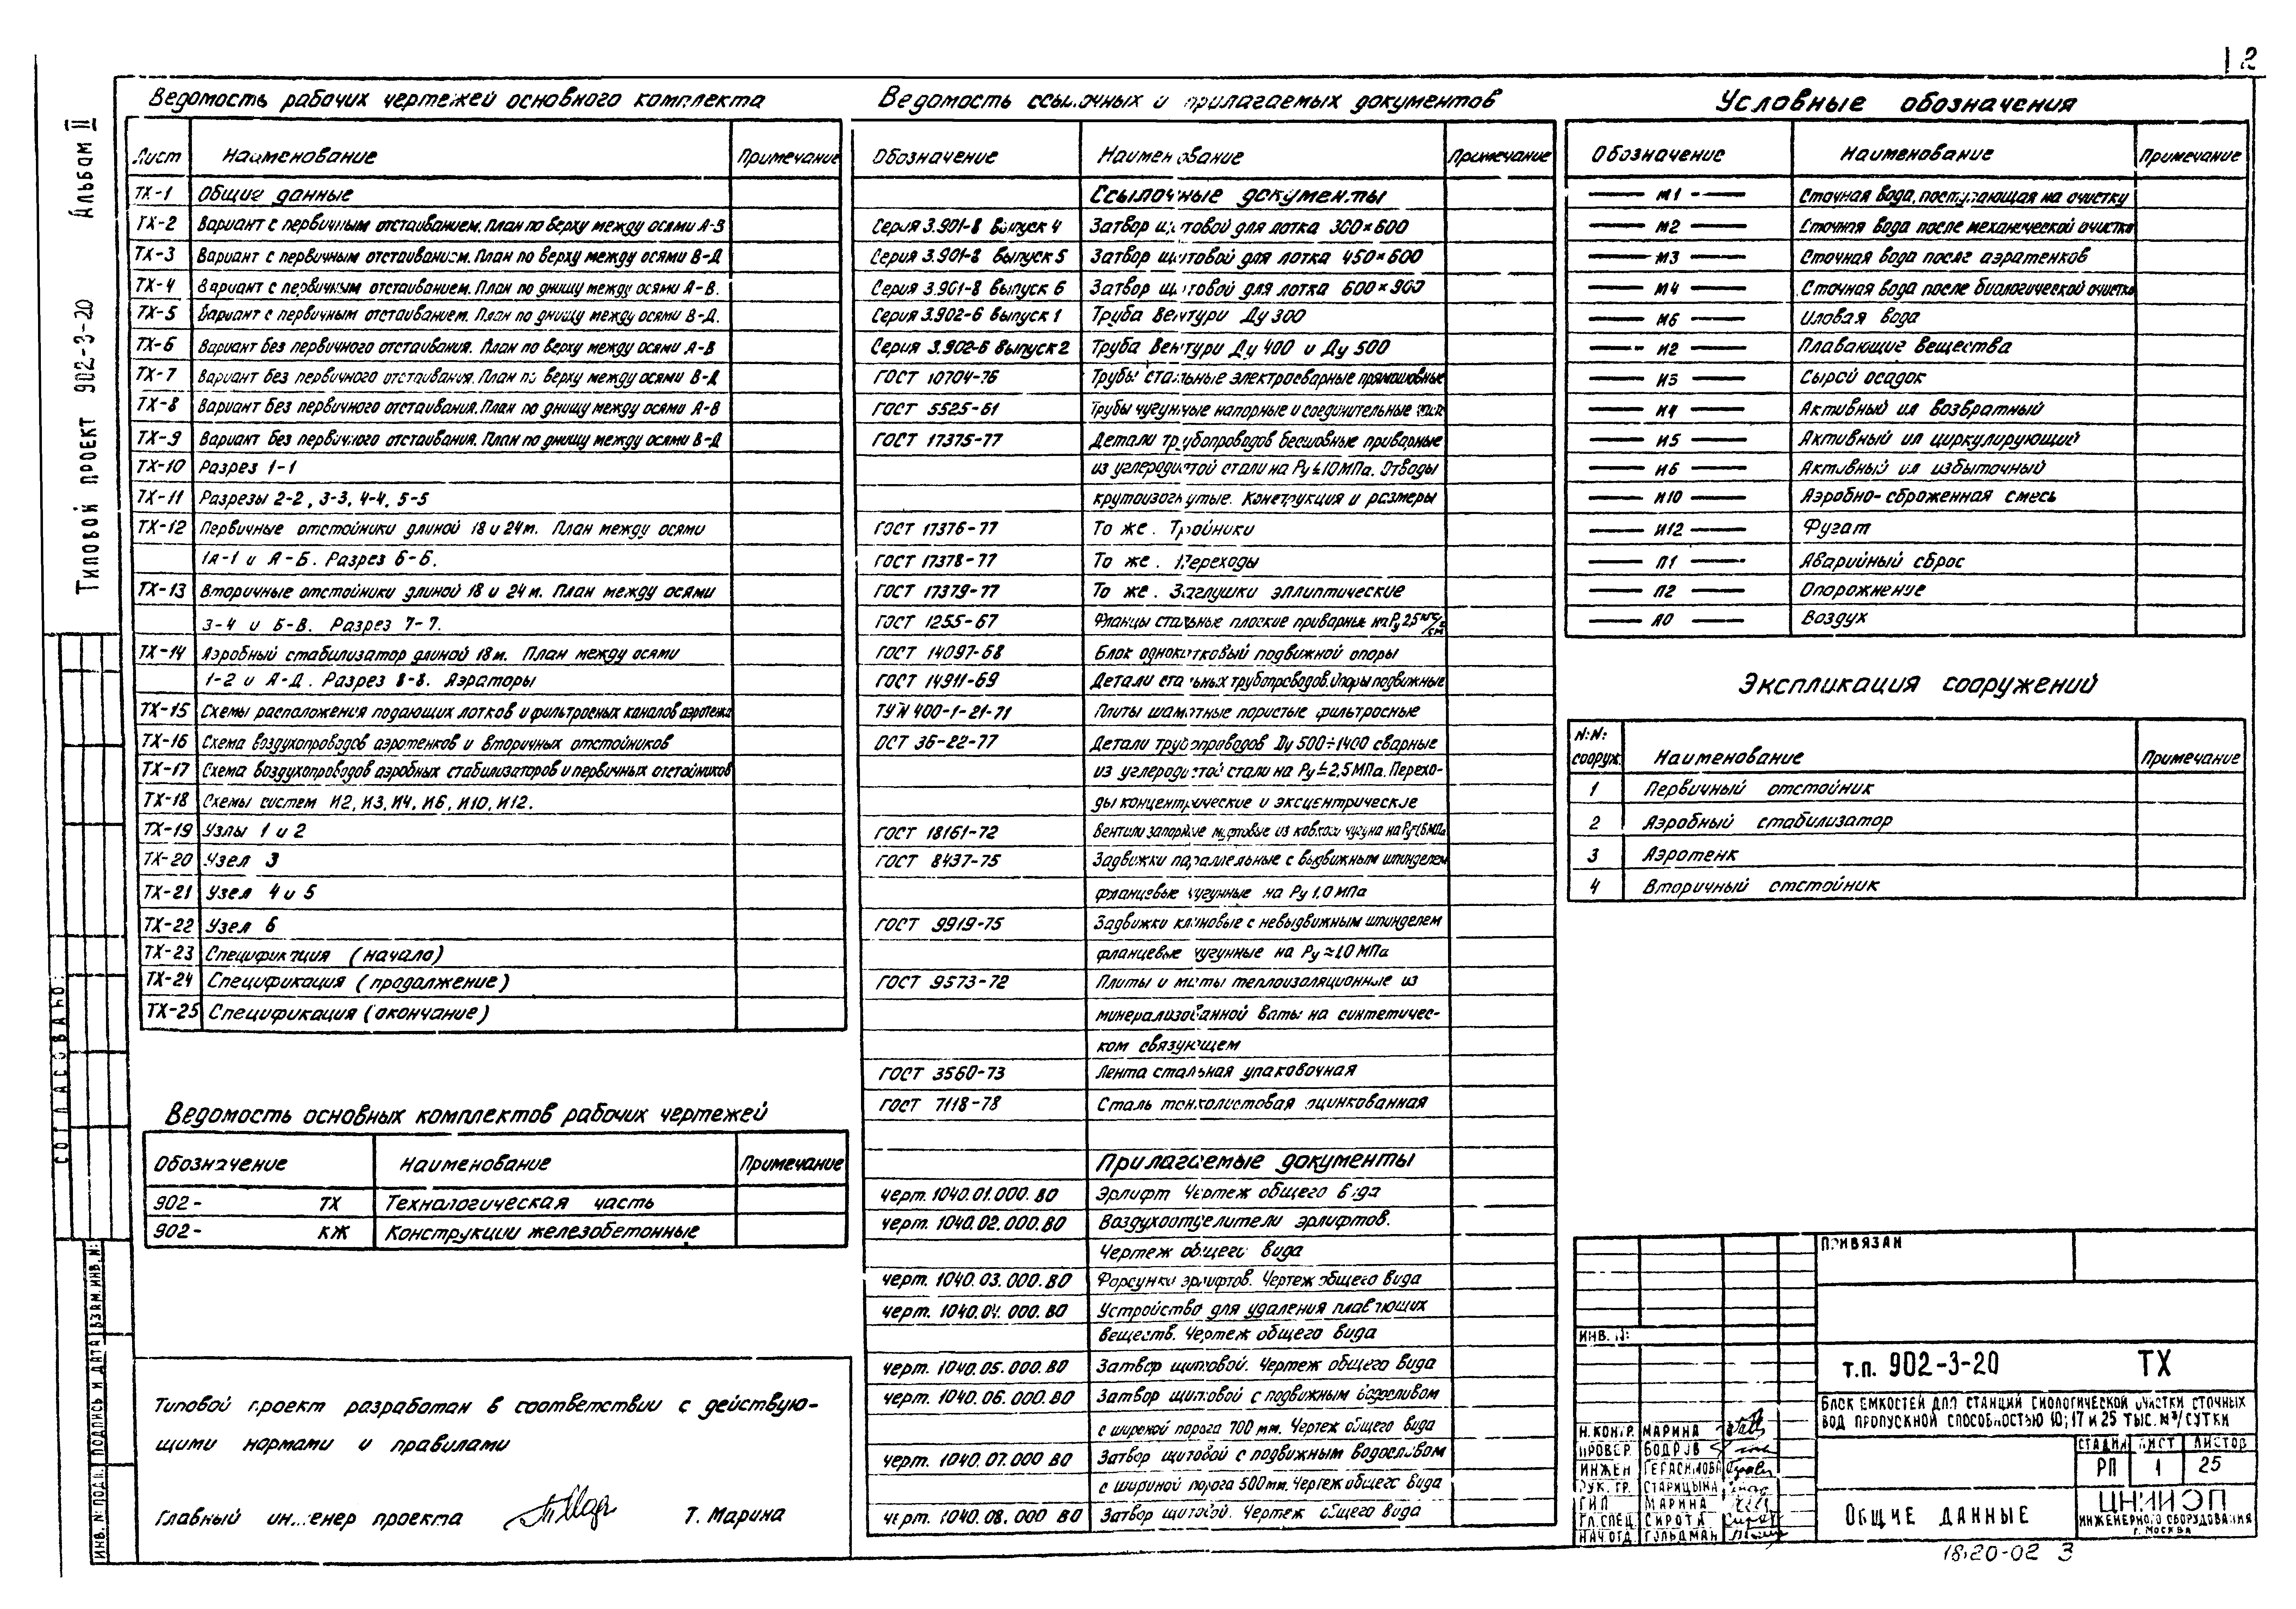 2
Альбом II
Типовой проект 902-3-20
Согласовано:
Взам. инв. №:
Подпись и дата
Инв. № подл.
Ведомость рабочих чертежей основного комплекта
Лист Наименование Примечание
ТХ-1 Общие данные
ТХ-2 Вариант с первичным отстаиванием. План по верху между осями А-В
ТХ-3 Вариант с первичным отстаиванием. План по верху между осями В-Д
ТХ-4 Вариант с первичным отстаиванием. План по днищу между осями А-В.
ТХ-5 Вариант с первичным отстаиванием. План по днищу между осями В-Д.
ТХ-6 Вариант без первичного отстаивания. План по верху между осями А-В
ТХ-7 Вариант без первичного отстаивания. План по верху между осями В-Д
ТХ-8 Вариант без первичного отстаивания. План по днищу между осями А-В
ТХ-9 Вариант без первичного отстаивания. План по днищу между осями В-Д
ТХ-10 Разрез 1-1
ТХ-11 Разрезы 2-2, 3-3, 4-4, 5-5
ТХ-12 Первичные отстойники длиной 18 и 24 м. План между осями
1А-1 и А-Б. Разрез 6-6.
ТХ-13 Вторичные отстойники длиной 18 и 24 м. План между осями
3-4 и Б-В. Разрез 7-7.
ТХ-14 Аэробный стабилизатор длиной 18 м. План между осями
1-2 и А-Д. Разрез 8-8. Аэраторы
ТХ-15 Схемы расположения подающих лотков и фильтросных каналов аэротенка
ТХ-16 Схема воздухопроводов аэротенков и вторичных отстойников
ТХ-17 Схема воздухопроводов аэробных стабилизаторов и первичных отстойников
ТХ-18 Схемы систем И2, И3, И4, И6, И10, И12.
ТХ-19 Узлы 1 и 2
ТХ-20 Узел 3
ТХ-21 Узел 4 и 5
ТХ-22 Узел 6
ТХ-23 Спецификация (начало)
ТХ-24 Спецификация (продолжение)
ТХ-25 Спецификация (окончание)
Ведомость основных комплектов рабочих чертежей
Обозначение Наименование Примечание
902- ТХ Технологическая часть
902- КЖ Конструкции железобетонные
Типовой проект разработан в соответствии с действую-
щими нормами и правилами
Главный инженер проекта Т. Марина
Ведомость ссылочных и прилагаемых документов
Обозначение Наименование Примечание
Ссылочные документы
Серия 3.901-8 выпуск 4 Затвор щитовой для лотка 300×600
Серия 3.901-8 выпуск 5 Затвор щитовой для лотка 450×600
Серия 3.901-8 выпуск 6 Затвор щитовой для лотка 600×900
Серия 3.902-6 выпуск 1 Труба Вентури Ду 300
Серия 3.902-6 выпуск 2 Труба Вентури Ду 400 и Ду 500
ГОСТ 10704-76 Трубы стальные электросварные прямошовные
ГОСТ 5525-61 Трубы чугунные напорные и соединительные части
ГОСТ 17375-77 Детали трубопроводов бесшовные приварные
из углеродистой стали на Ру≤10 МПа. Отводы
крутоизогнутые. Конструкция и размеры
ГОСТ 17376-77 То же. Тройники
ГОСТ 17378-77 То же. Переходы
ГОСТ 17379-77 То же. Заглушки эллиптические
ГОСТ 1255-67 Фланцы стальные плоские приварные на Ру 2,5 кгс/см
ГОСТ 14097-68 Блок однокатковый подвижной опоры
ГОСТ 14911-69 Детали стальных трубопроводов. Опоры подвижные
ТУ № 400-1-21-71 Плиты шамотные пористые фильтросные
ОСТ 36-22-77 Детали трубопроводов Ду 500÷1400 сварные
из углеродистой стали на Ру≤2,5 МПа. Перехо-
ды концентрические и эксцентрические
ГОСТ 18161-72 Вентили запорные муфтовые из ковкого чугуна на Ру 1,6 МПа
ГОСТ 8437-75 Задвижки параллельные с выдвижным шпинделем
фланцевые чугунные на Ру 1,0 МПа
ГОСТ 9919-75 Задвижки клиновые с невыдвижным шпинделем
фланцевые чугунные на Ру≈1,0 МПа
ГОСТ 9573-72 Плиты и маты теплоизоляционные из
минерализованной ваты на синтетичес-
ком связующем
ГОСТ 3560-73 Лента стальная упаковочная
ГОСТ 7118-78 Сталь тонколистовая оцинкованная
Прилагаемые документы
черт. 1040.01.000.ВО Эрлифт Чертеж общего вида
черт. 1040.02.000.ВО Воздухоотделители эрлифтов.
Чертеж общего вида
черт. 1040.03.000.ВО Форсунки эрлифтов. Чертеж общего вида
черт. 1040.04.000.ВО Устройство для удаления плавающих
веществ. Чертеж общего вида
черт. 1040.05.000.ВО Затвор щитовой. Чертеж общего вида
черт. 1040.06.000.ВО Затвор щитовой с подвижным водосливом
с шириной порога 700 мм. Чертеж общего вида
черт. 1040.07.000 ВО Затвор щитовой с подвижным водосливом
с шириной порога 500 мм. Чертеж общего вида
черт. 1040.08.000 ВО Затвор щитовой. Чертеж общего вида
Условные обозначения
Обозначение Наименование Примечание
М1 Сточная вода, поступающая на очистку
М2 Сточная вода после механической очистки
М3 Сточная вода после аэротенков
М4 Сточная вода после биологической очистки
М6 Иловая вода
И2 Плавающие вещества
И3 Сырой осадок
И4 Активный ил возвратный
И5 Активный ил циркулирующий
И6 Активный ил избыточный
И10 Аэробно-сброженная смесь
И12 Фугат
П1 Аварийный сброс
П2 Опорожнение
А0 Воздух
Экспликация сооружений
№:№: сооруж. Наименование Примечание
1 Первичный отстойник
2 Аэробный стабилизатор
3 Аэротенк
4 Вторичный отстойник
Привязан
Инв. №:
т.п. 902-3-20 ТХ
Блок емкостей для станций биологической очистки сточных
вод пропускной способностью 10; 17 и 25 тыс. м³/сутки
Н.контр. Марина
Провер. Бодров
Инжен Герасимова
Рук. гр. Старицына
ГИП Марина
Гл.спец Сирота
Нач.отд Гольдман
Стадия Лист Листов
РП 1 25
Общие данные
ЦНИИЭП
инженерного оборудования
г. Москва
18120-02 3